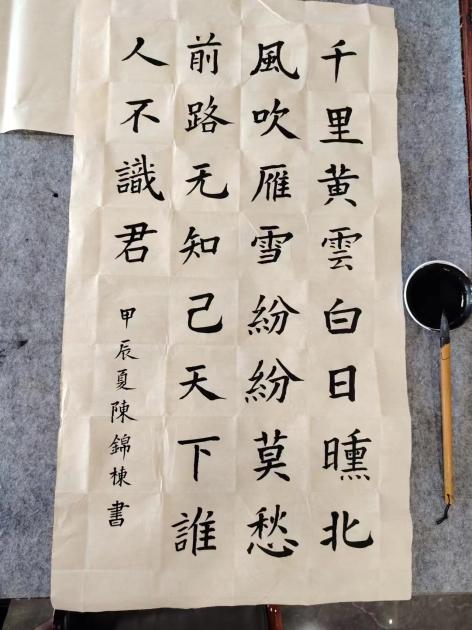 千里黄雲白日曛北
風吹雁雪紛紛莫愁
前路无知己天下誰
人不識君
甲辰夏陳錦棟書